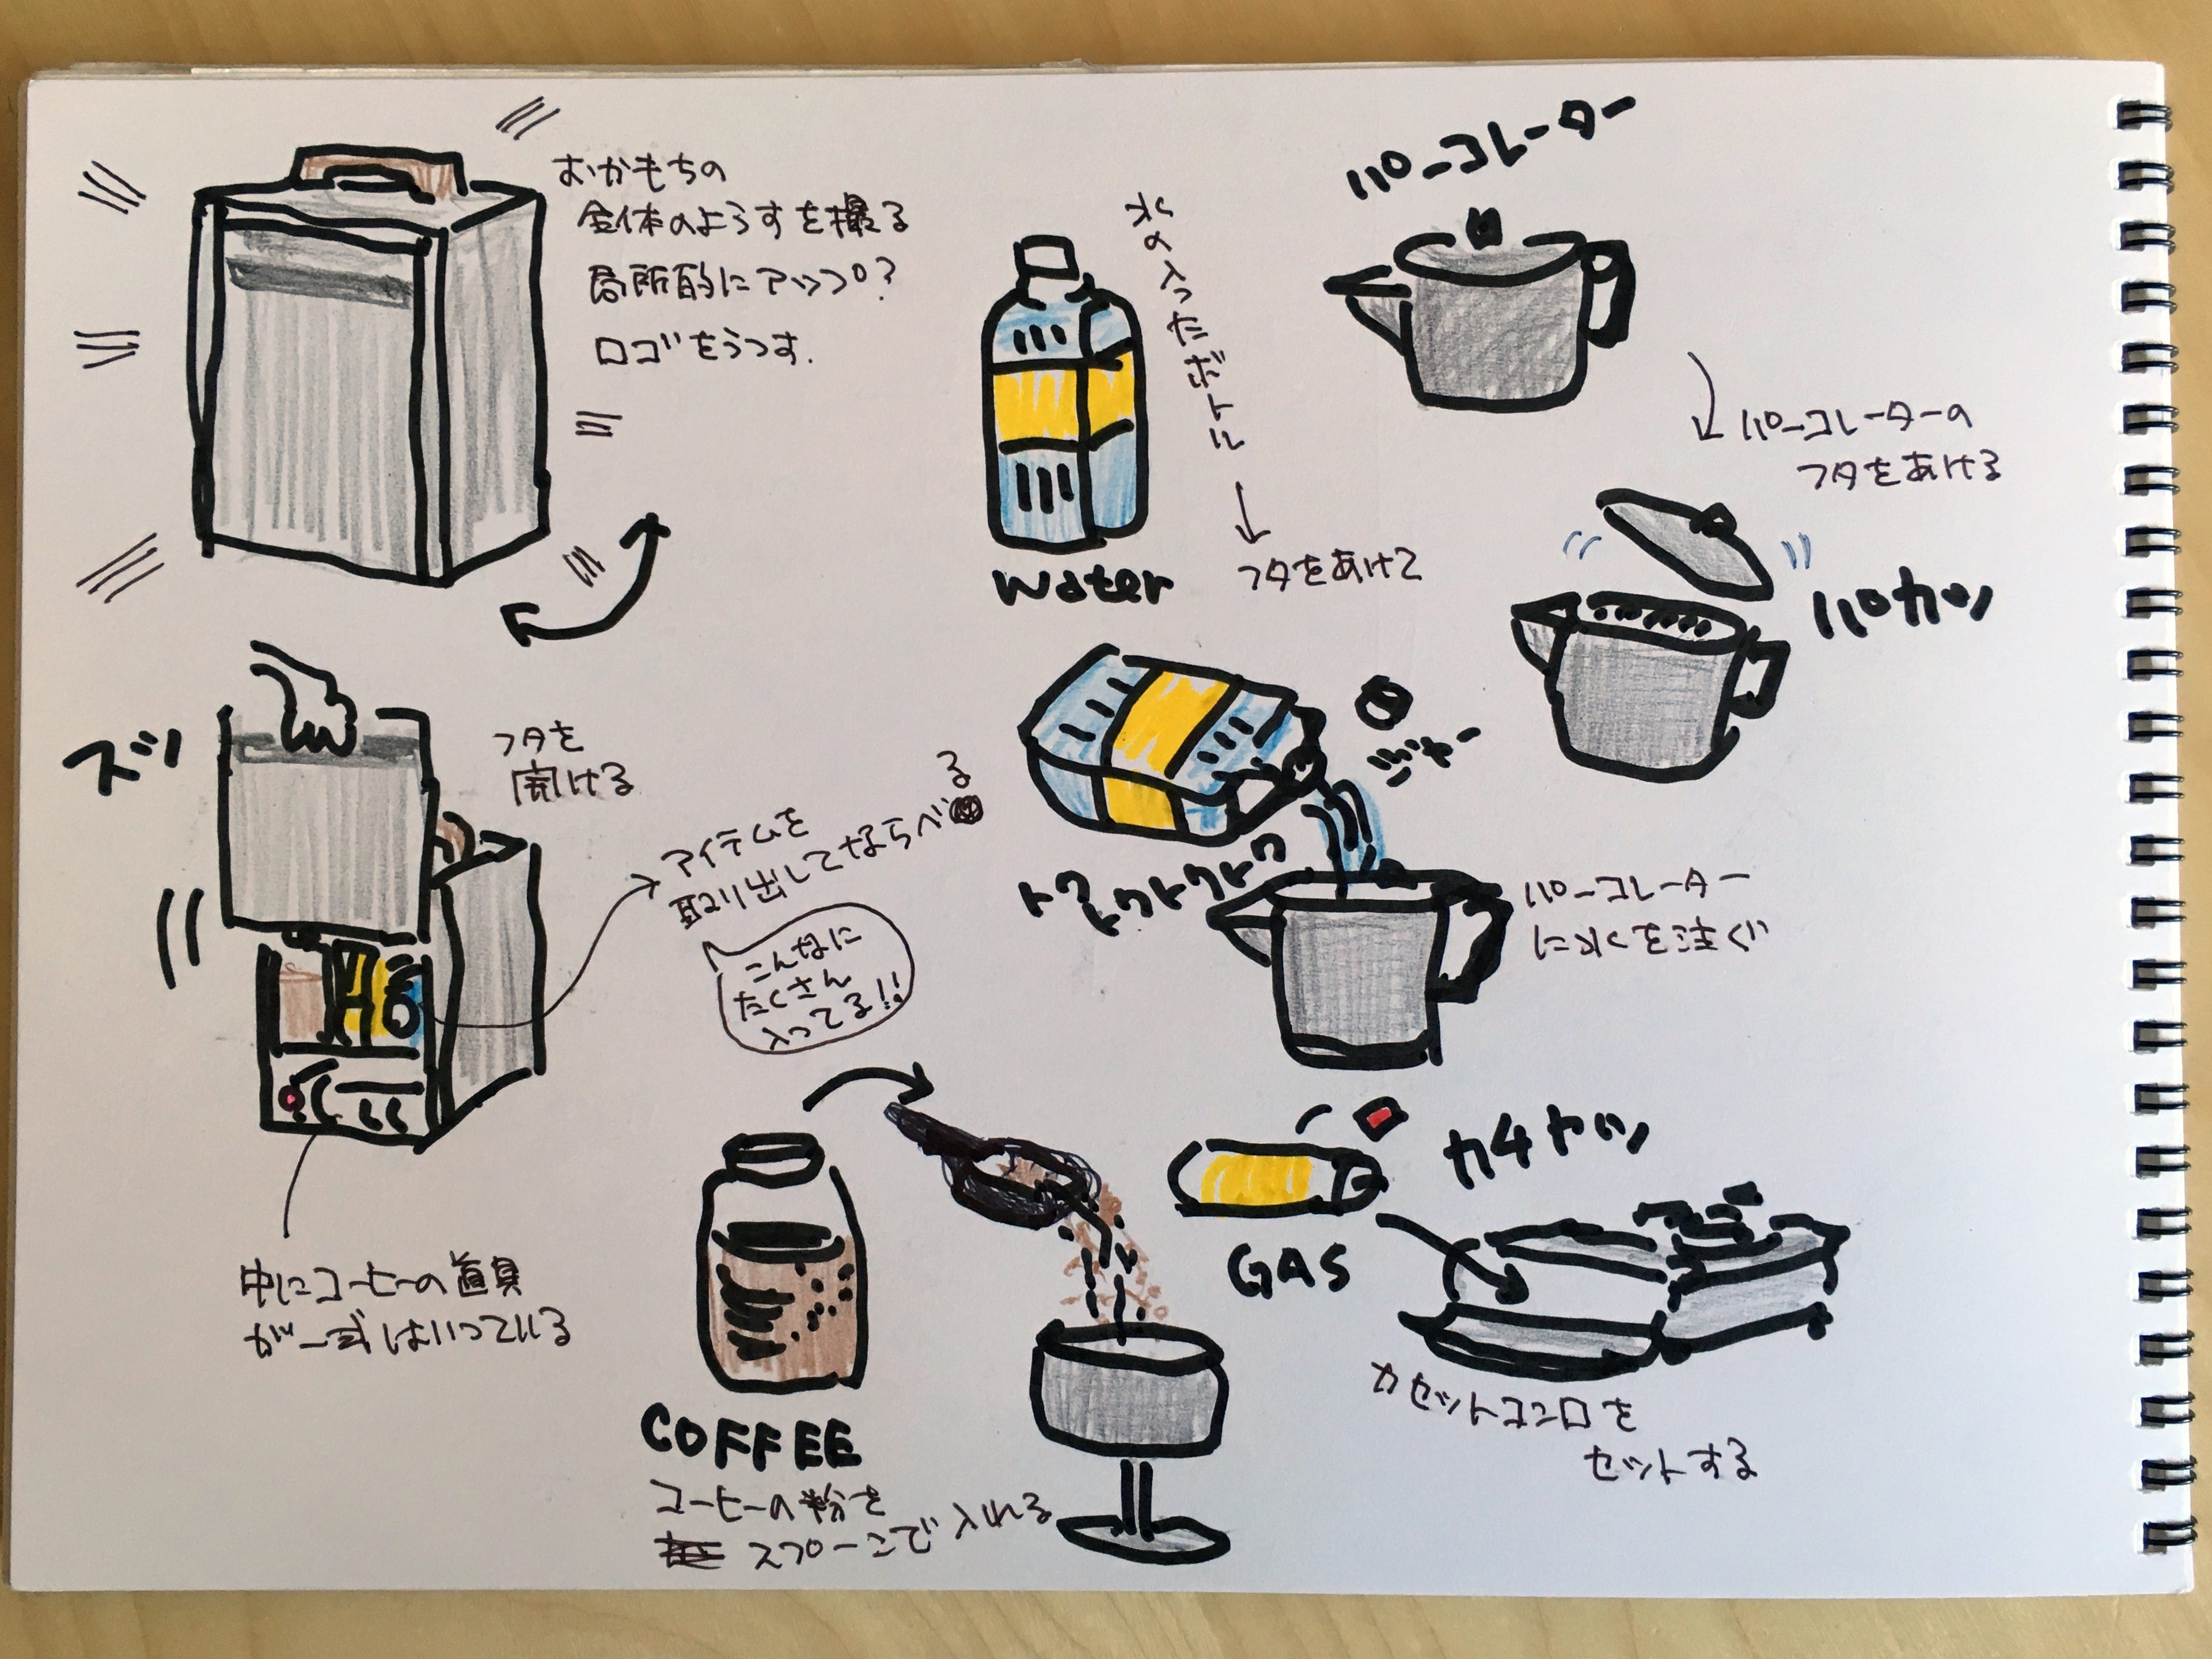 おかもちの
全体のようすを撮る
局所的にアップ?
ロゴをうつす.
ズッ
フタを
開ける
アイテムを
取り出してならべる
こんなに
たくさん
入ってる!!
中にコーヒーの道具
が一式はいっている
水の入ったボトル
Water
フタをあけて
パーコレーター
パーコレーターの
フタをあける
パカッ
ジャー
トクトクトクトク
パーコレーター
に水を注ぐ
COFFEE
コーヒーの粉を
スプーンで入れる
GAS
カチャッ
カセットコンロを
セットする